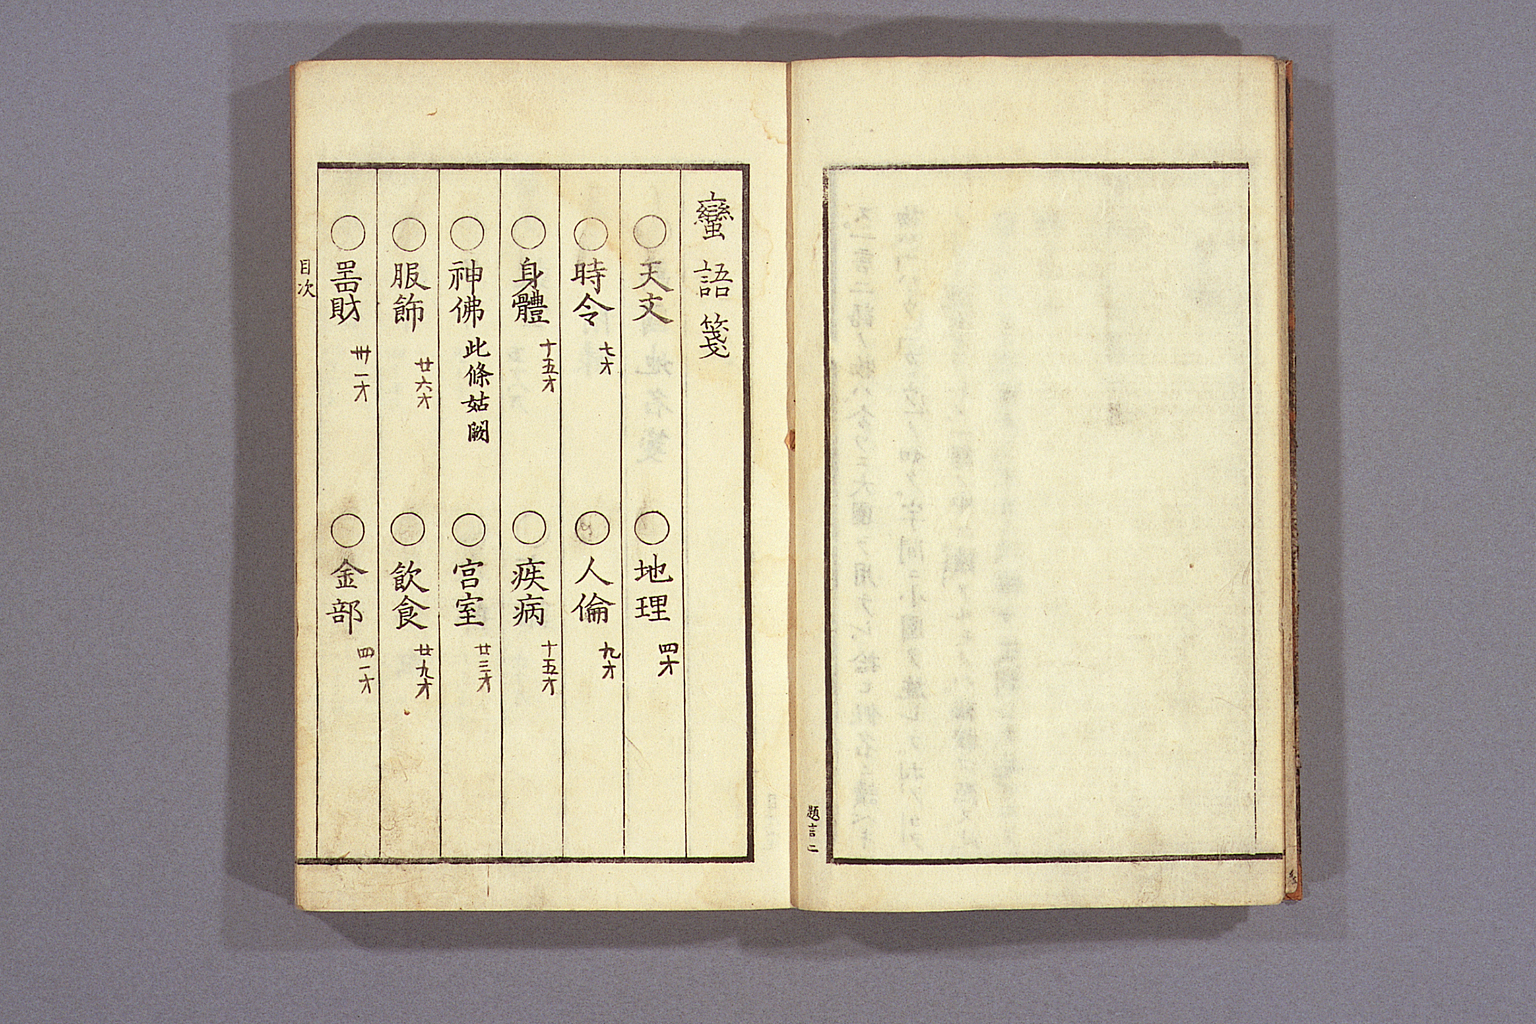 題言二
蠻語箋
○天文 四才
○地理 四才
○時令 七才
○人倫 九才
○身體 十五才
○疾病 十五才
○神佛 此條姑闕
○宮室 廿三才
○服飾 廿六才
○飲食 廿九才
○噐財 卅一才
○金部 四一才
目次